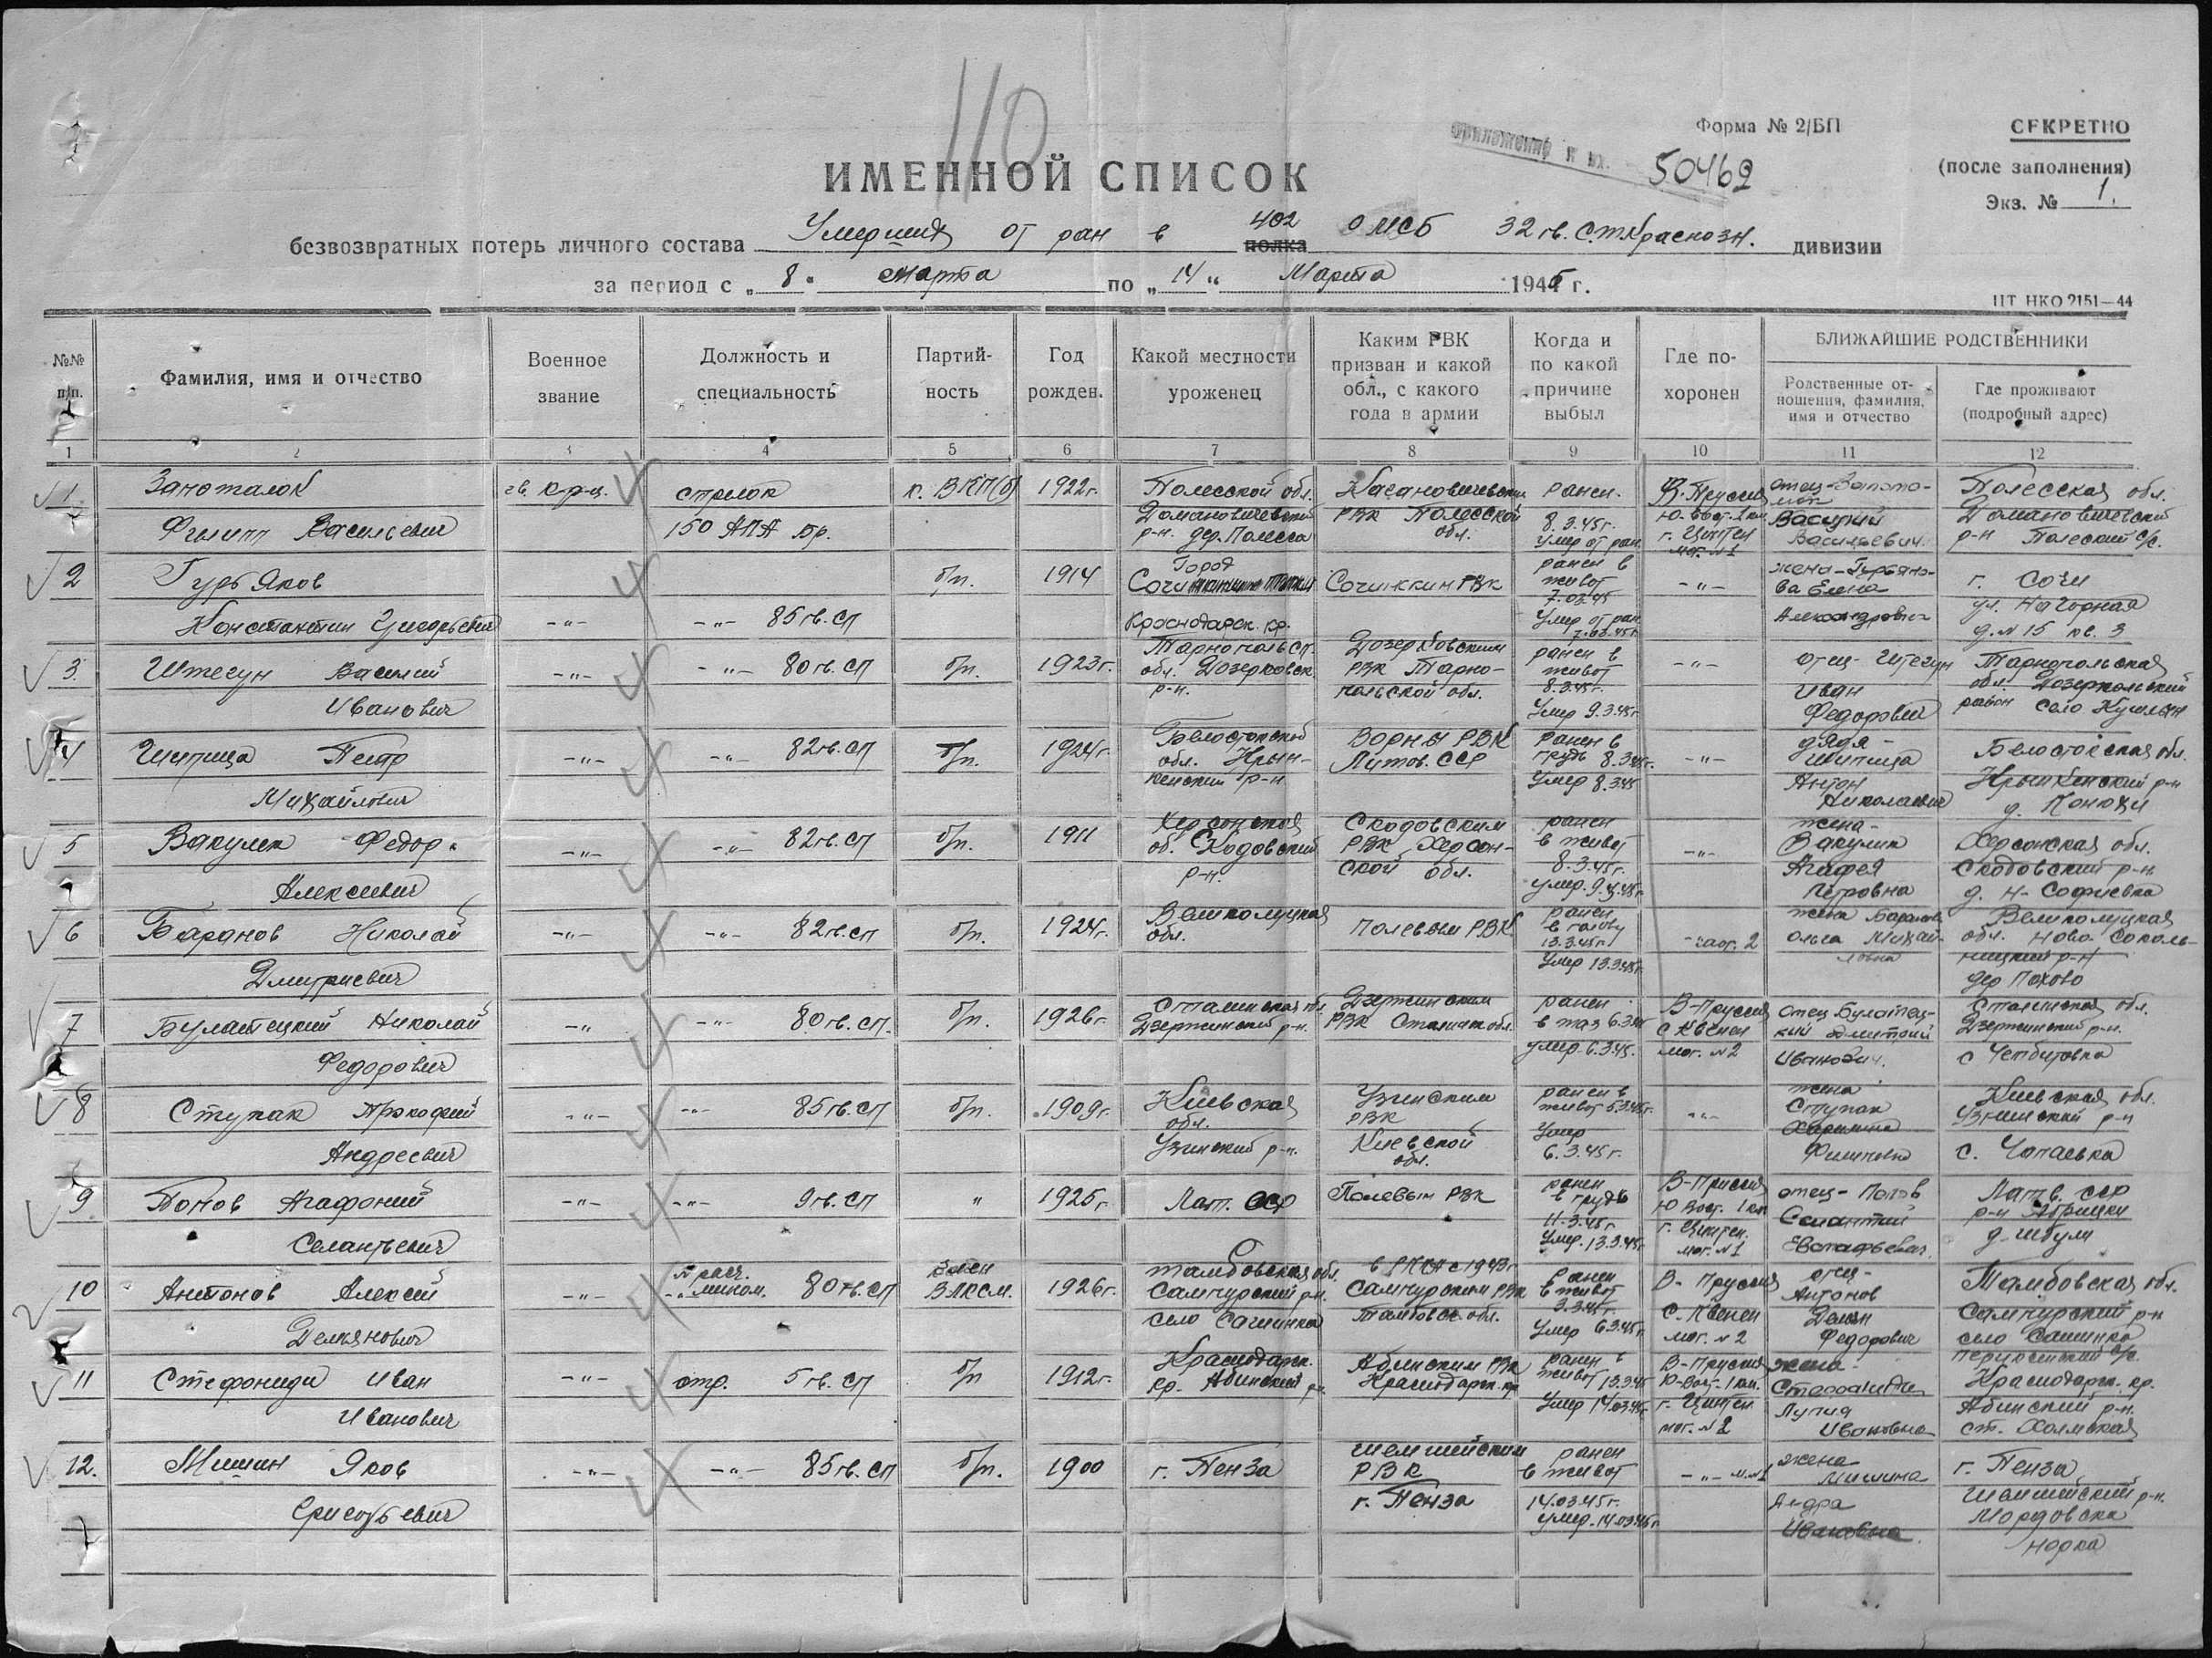 110
Форма № 2/БП
СЕКРЕТНО
приложение к вх. 50462
(после заполнения)
Экз. № 1.
ИМЕННОЙ СПИСОК
безвозвратных потерь личного состава Умерших от ран в 402 полка ОМСБ 32 гв. С.т.Краснозн. дивизии
за период с „ 8 “ марта по „ 14 “ Марта 1945 г.
ЦТ НКО 2151—44
№№ п/п.
Фамилия, имя и отчество
Военное звание
Должность и специальность
Партий-
ность
Год рожден.
Какой местности уроженец
Каким РВК призван и какой обл., с какого года в армии
Когда и по какой причине выбыл
Где по-
хоронен
БЛИЖАЙШИЕ РОДСТВЕННИКИ
Родственные от-
ношения, фамилия, имя и отчество
Где проживают (подробный адрес)
1 2 3 4 5 6 7 8 9 10 11 12
1 Заноталок гв. кр-ц. стрелок к. ВКП(б) 1922г. Полесской обл. РВК Полесской обл. ранен. В. Пруссия отец Полесская обл.
Филипп Васильевич 150 АПА бр. Домановичевский р-н. дер. Полесса 8.3.45г. умер от ран Ю. Вост. 1 км г. Цинтен мог. №1 Василий Васильевич. Домановичевский р-н Полесский с/с.
2 Гурьяков -"- -"- 85 гв. сп б/п. 1914 Город Сочи ранен в живот 7.03.45 -"- жена-Гурьяно-
ва Елена г. Сочи
Константин Григорьевич Краснодарск. кр. Умер от ран 7.03.45г. Александровна ул. Нагорная д. № 15 кв. 3
3. Штегун Василий -"- -"- 80 гв. сп б/п. 1923г. обл. Дозерковск. р-н. Дозерковским РВК Тарно-
польской обл. ранен в живот 8.3.45г. -"- отец-Штегун Тарнопольская обл.
Иванович Умер 9.3.45г. Иван Федорович район село
4 Шипица Петр -"- -"- 82 гв. сп б/п. 1924г. Белостокской обл. Крын-
кенский р-н Ворны РВК Литов. ССР ранен в грудь 8.3.45г. -"- дядя-Шипица Белостокская обл.
Михайлович Умер 8.3.45 Антон Николаевич Крынкенский р-н д. Конюхи
5 Вакулек Федор -"- -"- 82 гв. сп б/п. 1911 Херсонская об. Скадовский р-н. Скодовским РВК Херсон-
ской обл. ранен в живот 8.3.45г. -"- жена-Вакулик Херсонская обл.
Алексеевич умер 9.3.45г. Агафея Петровна Скодовский р-н. д. Н-Софиевка
6 Баранов Николай -"- -"- 82 гв. сп б/п. 1924г. Великолуцкая обл. Полевым РВК ранен в голову 13.3.45г. -"-мог. 2 жена Баранова Ольга Михай-
ловна Великолуцкая обл. Ново-Соколь-
ницкий р-н
Дмитриевич Умер 13.3.45г. дер Пахово
7 Булатецкий Николай -"- -"- 80 гв. сп. б/п. 1926г. Сталинская обл. Дзержинский р-н. Дзержинским РВК Сталинск обл. ранен в таз 6.3.45 В-Пруссия с Квенен мог. №2 отец-Булатец-
кий Дмитрий Иванович. Сталинская обл. Дзержинский р-н.
Федорович умер-6.3.45.
8 Ступак Прокофий -"- -"- 85 гв. сп б/п. 1909г. Киевская обл. Узинский р-н. Узинским РВК Киевской обл. ранен в живот 5.3.45г. -"- жена Ступак Киевская обл. Узинский р-н
Андреевич Умер 6.3.45г. с. Чопаевка
9 Попов Агафоний -"- -"- 9 гв. сп " 1925г Лат. ССР Полевым РВК ранен в грудь 11.3.45г В-Пруссия Ю Вост. 1 км г. Цинтен. мог. №1 отец-Попов Латв. ССР р-н Абрицки
Селантьевич Умер. 13.3.45г. Селантий Евстафьевич. д-Шбули
10 Антонов Алексей -"- миком. 80 гв. сп Член ВЛКСМ. 1926г. Тамбовская обл. Сампурский р-н. село Сашинка в РККА с 1943г Сампурским РВК Тамбовск обл. Ранен в живот 3.3.45г. В-Пруссия с. Квенен мог. №2 отец-Антонов Тамбовская обл. Сампурский р-н
Демьянович Умер 6.3.45г. Демьян Федорович село Сашинка
11 Стефониди Иван -"- отр. 5 гв. сп б/п 1912г. Краснодарск. кр. Абинский р-н Абинским РВК Краснодарск. кр ранен в живот 13.3.45 В-Пруссия Ю-Вост. 1 км. г. Цинтен мог. №2 жена- Краснодарск. кр. Абинский р-н.
Иванович Умер 14.03.45г. Ивановна ст. Холмская
12. Мишин Яков -"- -"- 85 гв. сп б/п. 1900 г. Пенза Шемшейским РВК г. Пенза ранен в живот 14.03.45г. -"- м. №1 жена Мишина г. Пенза
умер-14.03.45г. Ивановна Шемшейский р-н.